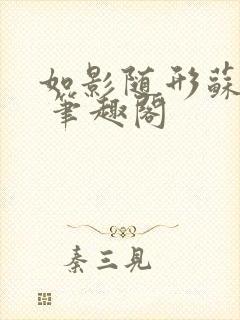 如影随形蘇
笔趣阁
秦三見